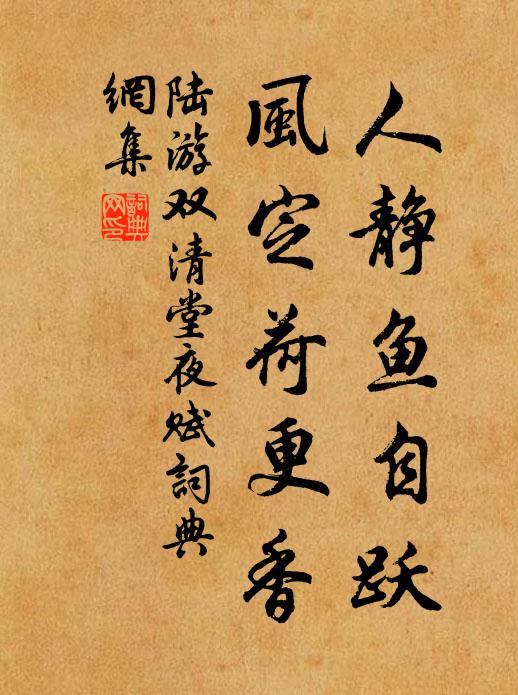 人静鱼自跃
風定荷更香
陆游双清堂夜赋詞典
網集
詞典网印